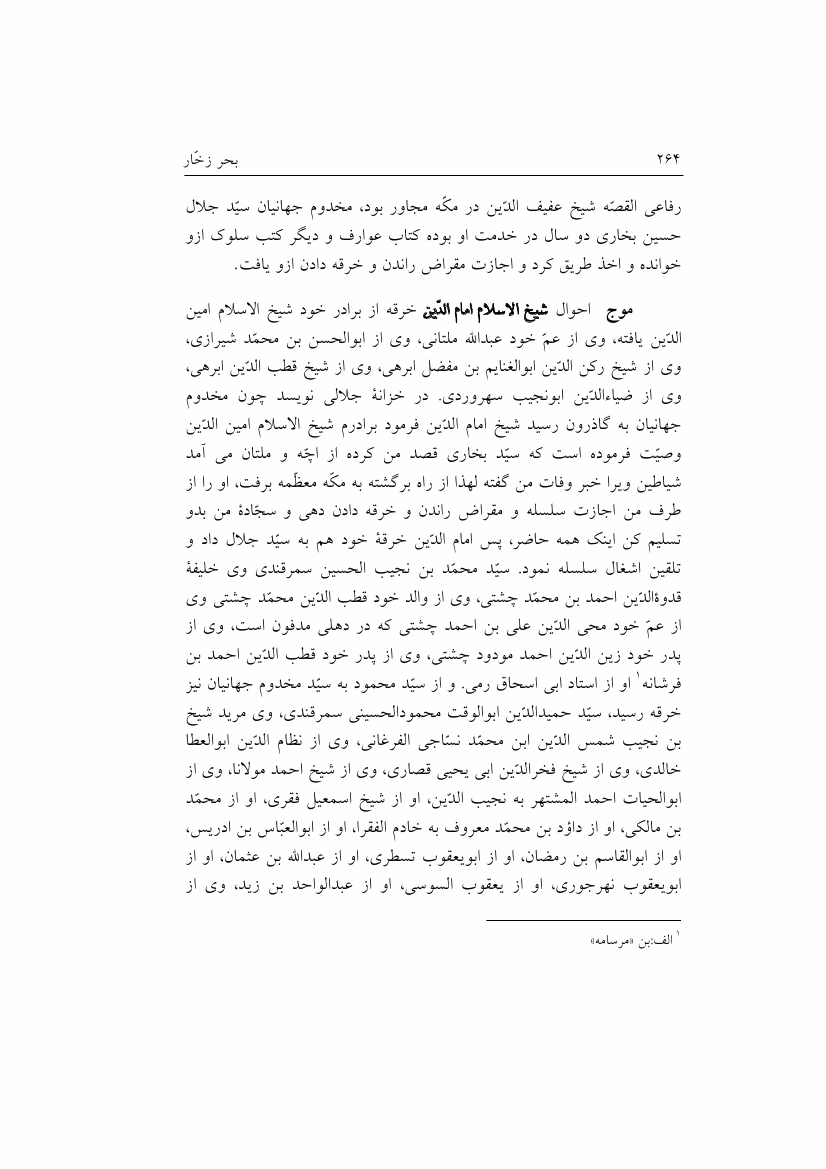 ۲۶۴ بحر زخّار
رفاعی القصّه شیخ عفیف الدّین در مکّه مجاور بود، مخدوم جهانیان سیّد جلال
حسین بخاری دو سال در خدمت او بوده کتاب عوارف و دیگر کتب سلوک ازو
خوانده و اخذ طریق کرد و اجازت مقراض راندن و خرقه دادن ازو یافت.
موج احوال شیخ الاسلام امام الدّین خرقه از برادر خود شیخ الاسلام امین
الدّین یافته، وی از عمّ خود عبدالله ملتانی، وی از ابوالحسن بن محمّد شیرازی،
وی از شیخ رکن الدّین ابوالغنایم بن مفضل ابرهی، وی از شیخ قطب الدّین ابرهی،
وی از ضیاءالدّین ابونجیب سهروردی. در خزانهٔ جلالی نویسد چون مخدوم
جهانیان به گاذرون رسید شیخ امام الدّین فرمود برادرم شیخ الاسلام امین الدّین
وصیّت فرموده است که سیّد بخاری قصد من کرده از اچّه و ملتان می آمد
شیاطین ویرا خبر وفات من گفته لهذا از راه برگشته به مکّه معظّمه برفت، او را از
طرف من اجازت سلسله و مقراض راندن و خرقه دادن دهی و سجّادهٔ من بدو
تسلیم کن اینک همه حاضر، پس امام الدّین خرقهٔ خود هم به سیّد جلال داد و
تلقین اشغال سلسله نمود. سیّد محمّد بن نجیب الحسین سمرقندی وی خلیفهٔ
قدوةالدّین احمد بن محمّد چشتی، وی از والد خود قطب الدّین محمّد چشتی وی
از عمّ خود محی الدّین علی بن احمد چشتی که در دهلی مدفون است، وی از
پدر خود زین الدّین احمد مودود چشتی، وی از پدر خود قطب الدّین احمد بن
فرشانه۱ او از استاد ابی اسحاق رمی. و از سیّد محمود به سیّد مخدوم جهانیان نیز
خرقه رسید، سیّد حمیدالدّین ابوالوقت محمودالحسینی سمرقندی، وی مرید شیخ
بن نجیب شمس الدّین ابن محمّد نسّاجی الفرغانی، وی از نظام الدّین ابوالعطا
خالدی، وی از شیخ فخرالدّین ابی یحیی قصاری، وی از شیخ احمد مولانا، وی از
ابوالحیات احمد المشتهر به نجیب الدّین، او از شیخ اسمعیل فقری، او از محمّد
بن مالکی، او از داؤد بن محمّد معروف به خادم الفقرا، او از ابوالعبّاس بن ادریس،
او از ابوالقاسم بن رمضان، او از ابویعقوب تسطری، او از عبدالله بن عثمان، او از
ابویعقوب نهرجوری، او از یعقوب السوسی، او از عبدالواحد بن زید، وی از
۱ الف:بن «مرسامه»